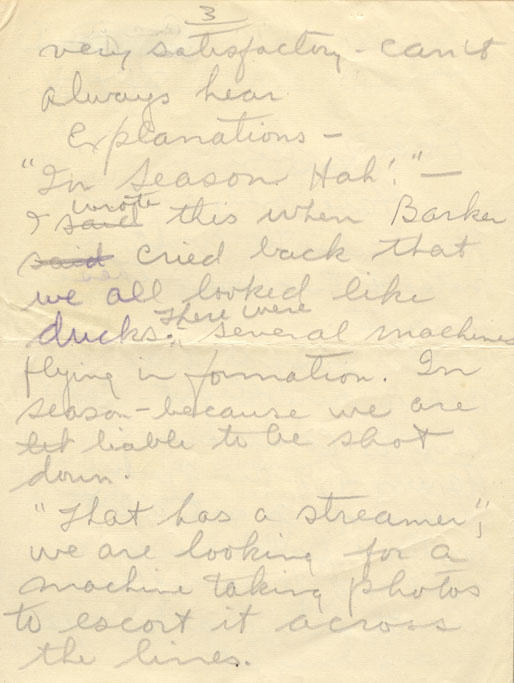 3
very satisfactory - can't
always hear
Explanations -
"In Season. Hah!" -
wrote
I said this when Barker
said cried back that
we all looked like
There were
ducks. several machines
flying in formation. In
season - because we are
let liable to be shot
down.
"That has a streamer",
we are looking for a
machine taking photos
to escort it across
the lines.